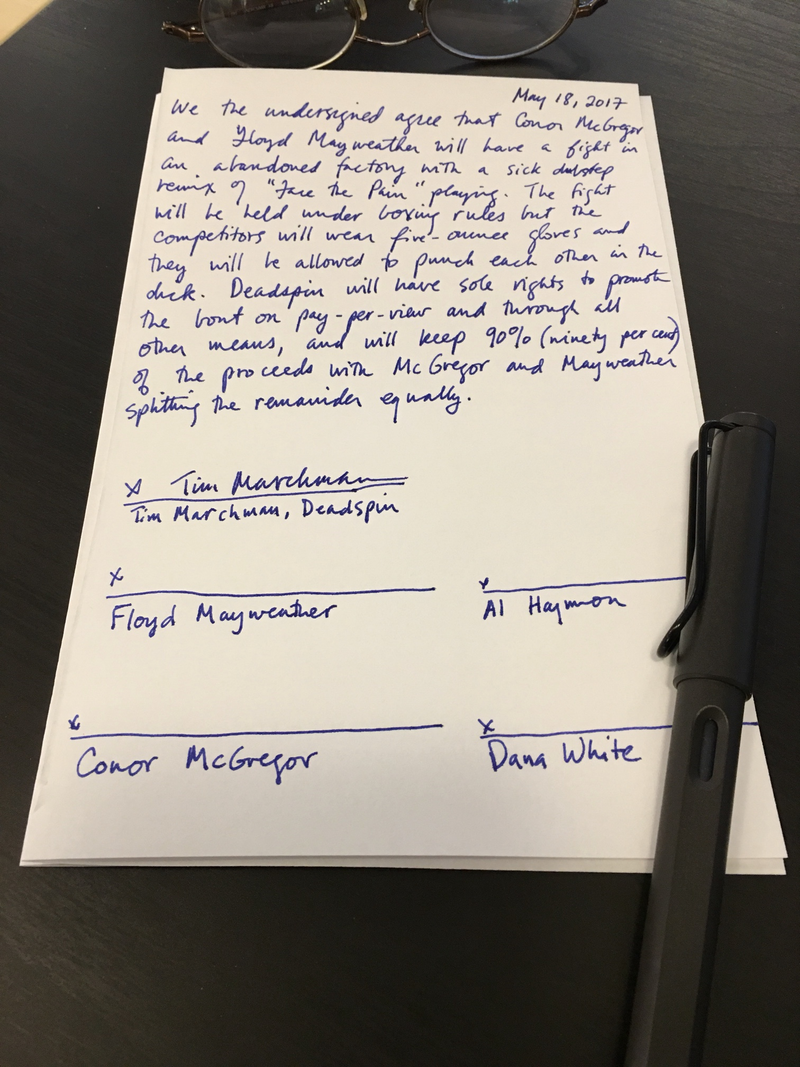 May 18, 2017
We the undersigned agree that Conor McGregor
and Floyd Mayweather will have a fight in
an abandoned factory with a sick dubstep
remix of "Face the Pain" playing. The fight
will be held under boxing rules but the
competitors will wear five-ounce gloves and
they will be allowed to punch each other in the
dick. Deadspin will have sole rights to promote
the bout on pay-per-view and through all
other means, and will keep 90% (ninety per cent)
of the proceeds with McGregor and Mayweather
splitting the remainder equally.
x Tim Marchman
Tim Marchman, Deadspin
x
Floyd Mayweather
x
Al Haymon
x
Conor McGregor
x
Dana White